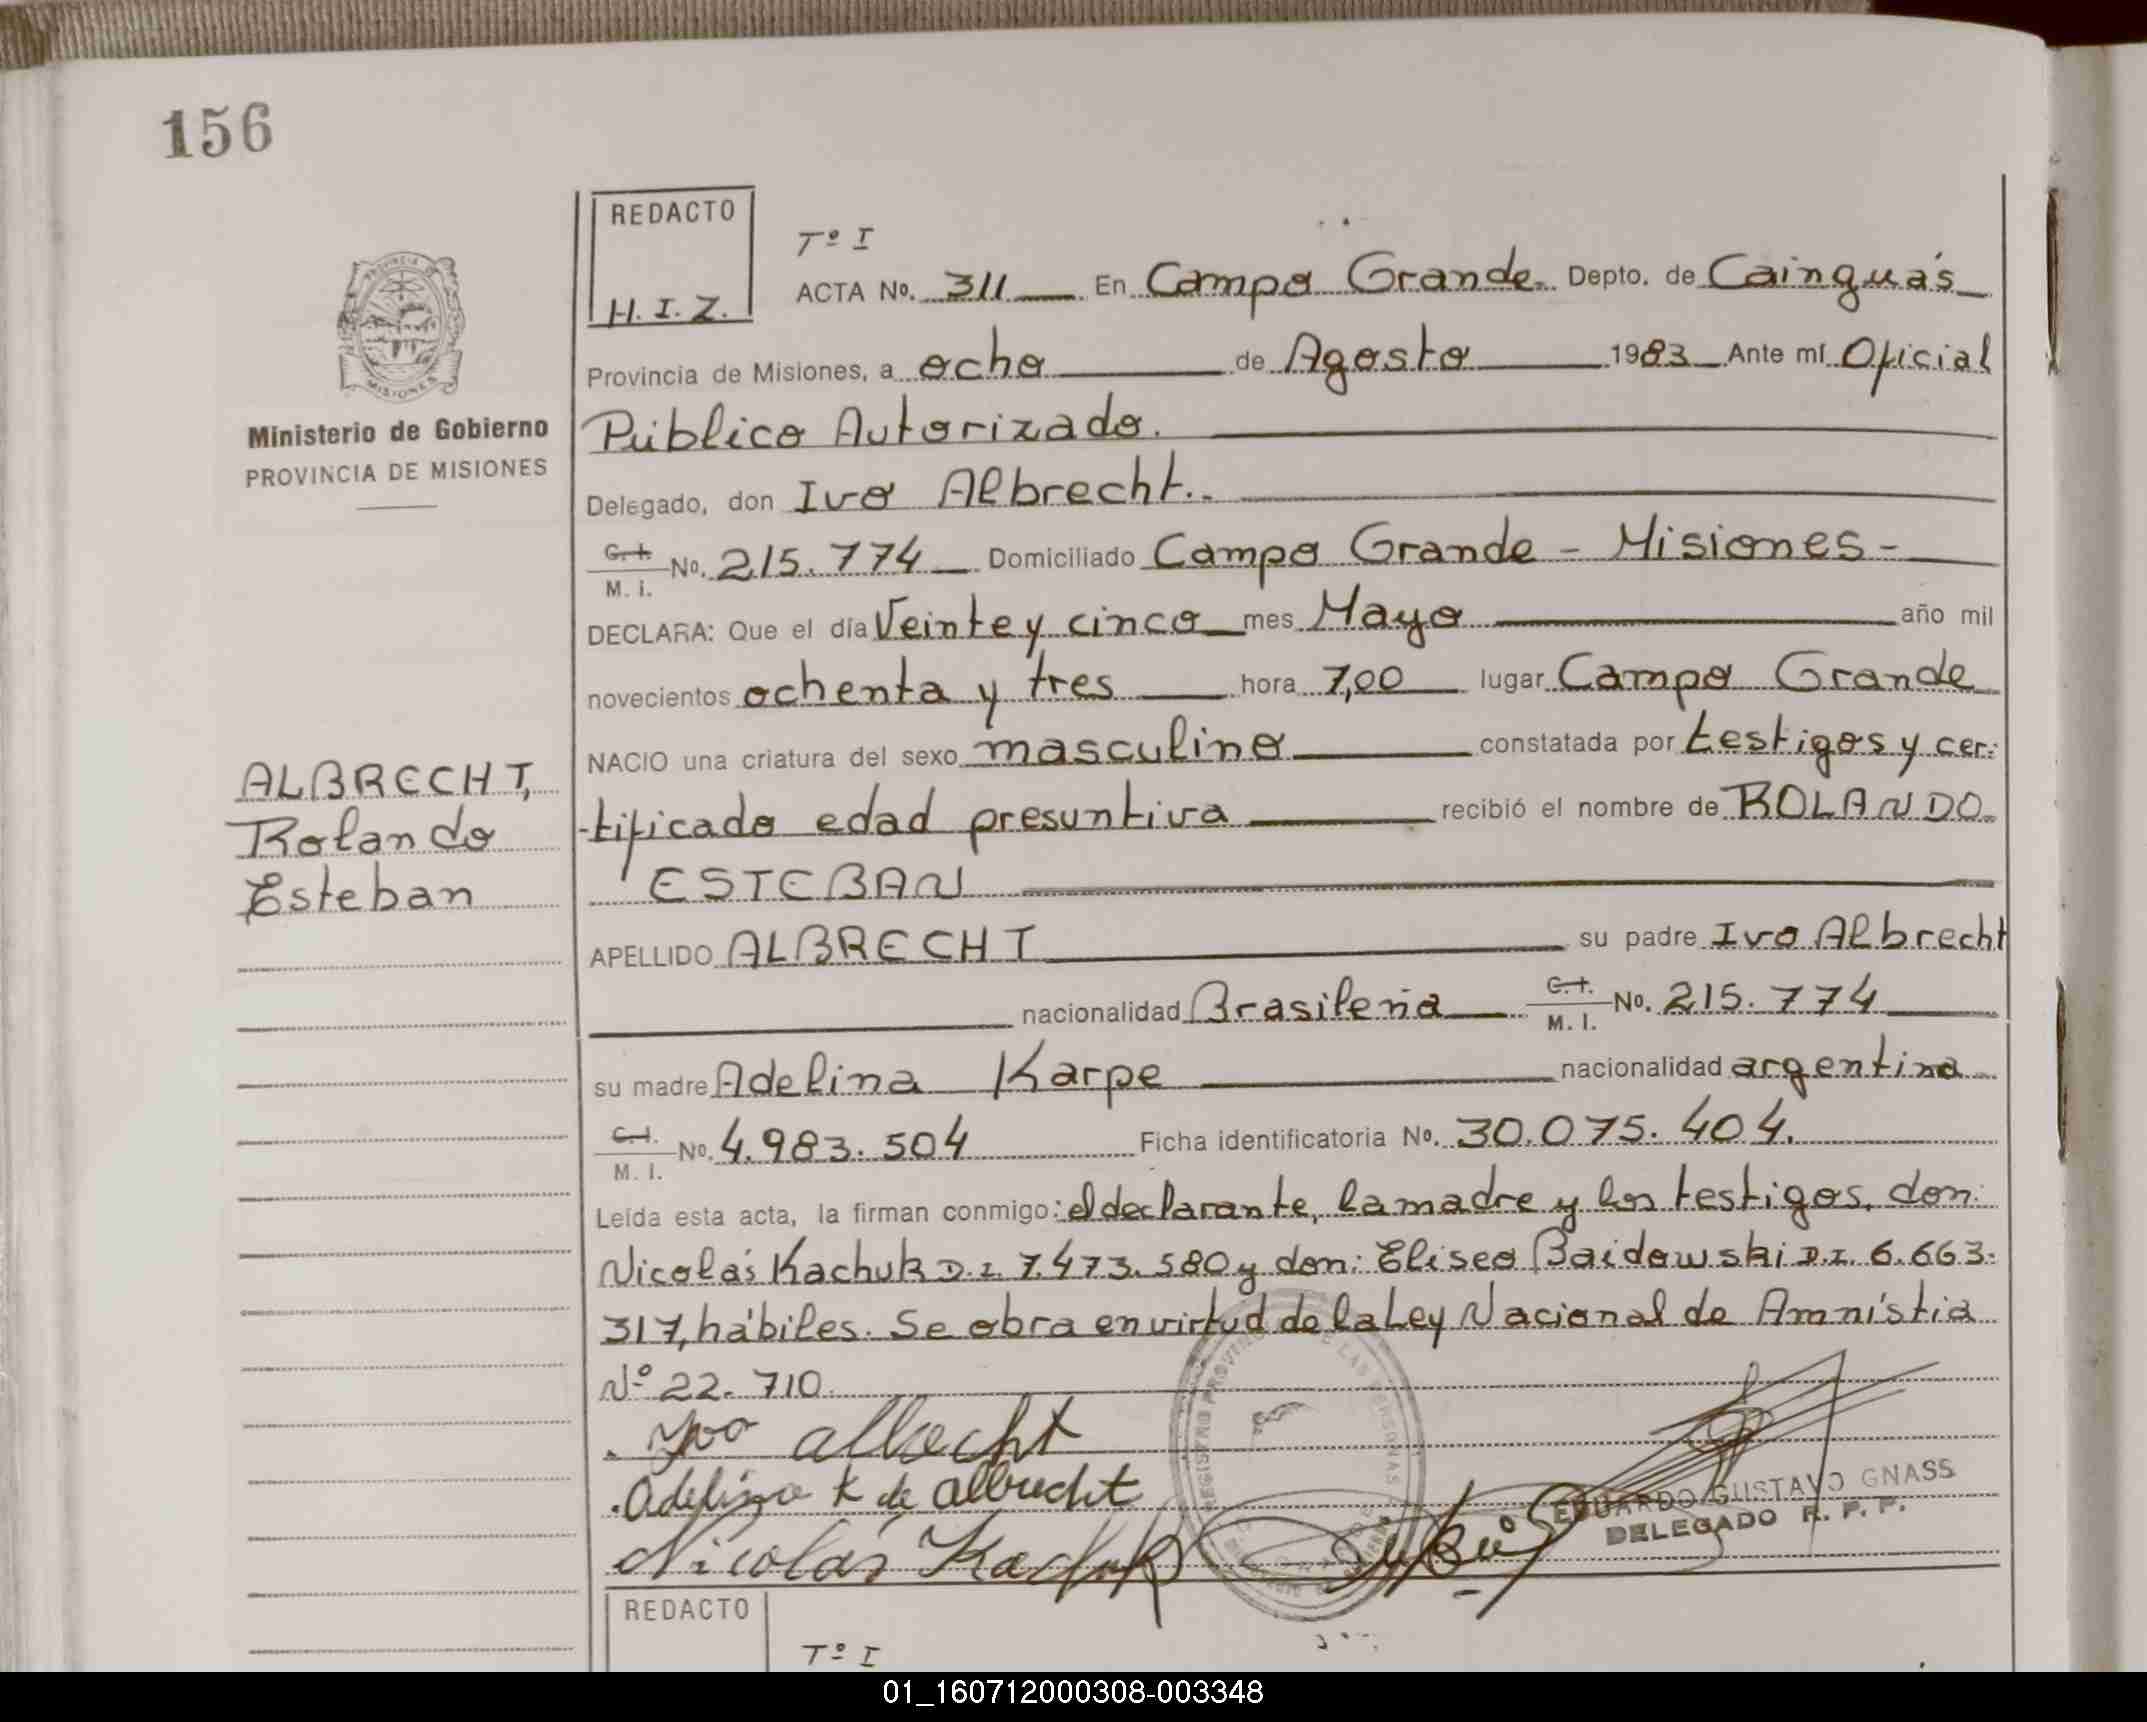 156
REDACTO
H.I.Z.
Tº I
ACTA Nº. 311 En Campo Grande. Depto. de Cainguás
Provincia de Misiones, a ocho de Agosto 1983 Ante mí Oficial
Público Autorizado.
Ministerio de Gobierno
PROVINCIA DE MISIONES
Delegado, don Ivo Albrecht.
C. I. M. I. Nº. 215.774 Domiciliado Campo Grande - Misiones -
DECLARA: Que el día Veinte y cinco mes Mayo año mil
novecientos ochenta y tres hora 7,00 lugar Campo Grande
NACIO una criatura del sexo masculino constatada por testigos y cer-
-tificado edad presuntiva recibió el nombre de ROLANDO
ESTEBAN
ALBRECHT,
Rolando
Esteban
APELLIDO ALBRECHT su padre Ivo Albrecht
nacionalidad Brasileña C. I. M. I. Nº. 215.774
su madre Adelina Karpe nacionalidad argentina
C. I. M. I. Nº. 4.983.504 Ficha identificatoria Nº. 30.075.404.
Leída esta acta, la firman conmigo: el declarante, la madre y los testigos, don:
Nicolás Kachuk D.I. 7.473.580 y don: Eliseo Baidowski D.I. 6.663.
317, hábiles. Se obra en virtud de la Ley Nacional de Amnistía
Nº 22.710.
Ivo albrecht
Adelina K de albrecht
Nicolás Kachuk
EDUARDO GUSTAVO GNASS
DELEGADO R. P. P.
REDACTO
Tº I
01_160712000308-003348